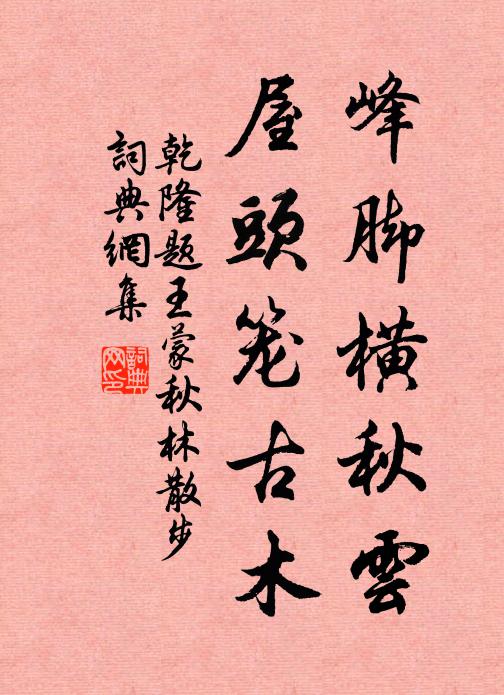 峰脚橫秋雲
屋頭笼古木
乾隆题王蒙秋林散步
詞典網集
詞典
网印